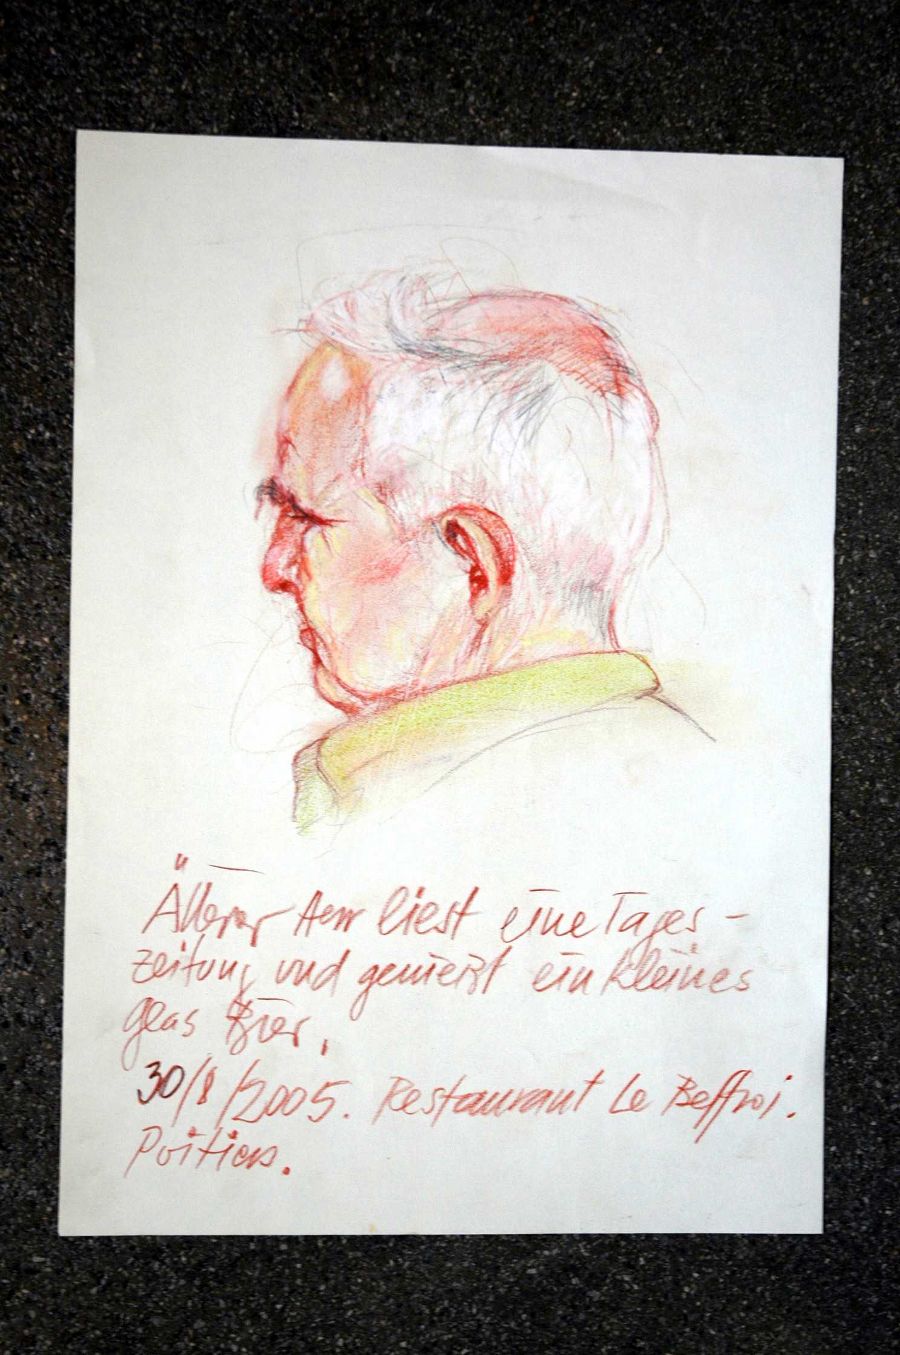 Älterer Herr liest eine Tages-
zeitung und genießt ein kleines
glas Bier.
30/8/2005. Restaurant Le Beffroi.
Poitiers.